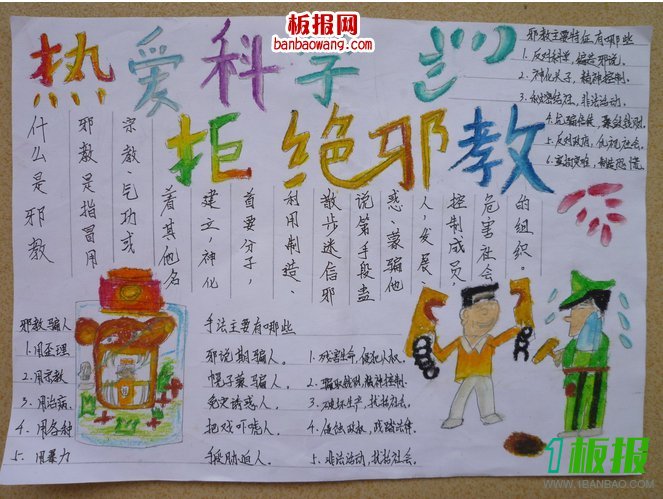 板报网
banbaowang.com
热爱科学
拒绝邪教
什么是邪教
邪教是指冒用
宗教、气功或
着其他名
建立,神化
首要分子,
利用制造、
散步迷信邪
说等手段蛊
惑、蒙骗他
人,发展、
控制成员,
危害社会
的组织。
邪教主要特征有哪些
1.反对科学,编造邪说。
2.神化头子,精神控制。
3.秘密结社,非法活动。
5.反对政府,仇视社会。
邪教骗人
1.用歪理
2.用宗教
3.用治病
4.用各种
5.用暴力
手法主要有哪些
邪说欺骗人。
幌子蒙骗人。
免灾诱惑人。
把戏吓唬人。
手段胁迫人。
1.残害生命,侵犯人权。
2.骗取钱财,精神控制.
3.破坏生产,扰乱社会。
4.侵蚀政权,践踏法律。
5.非法活动,扰乱社会。
1板报
WWW.1BANBAO.COM